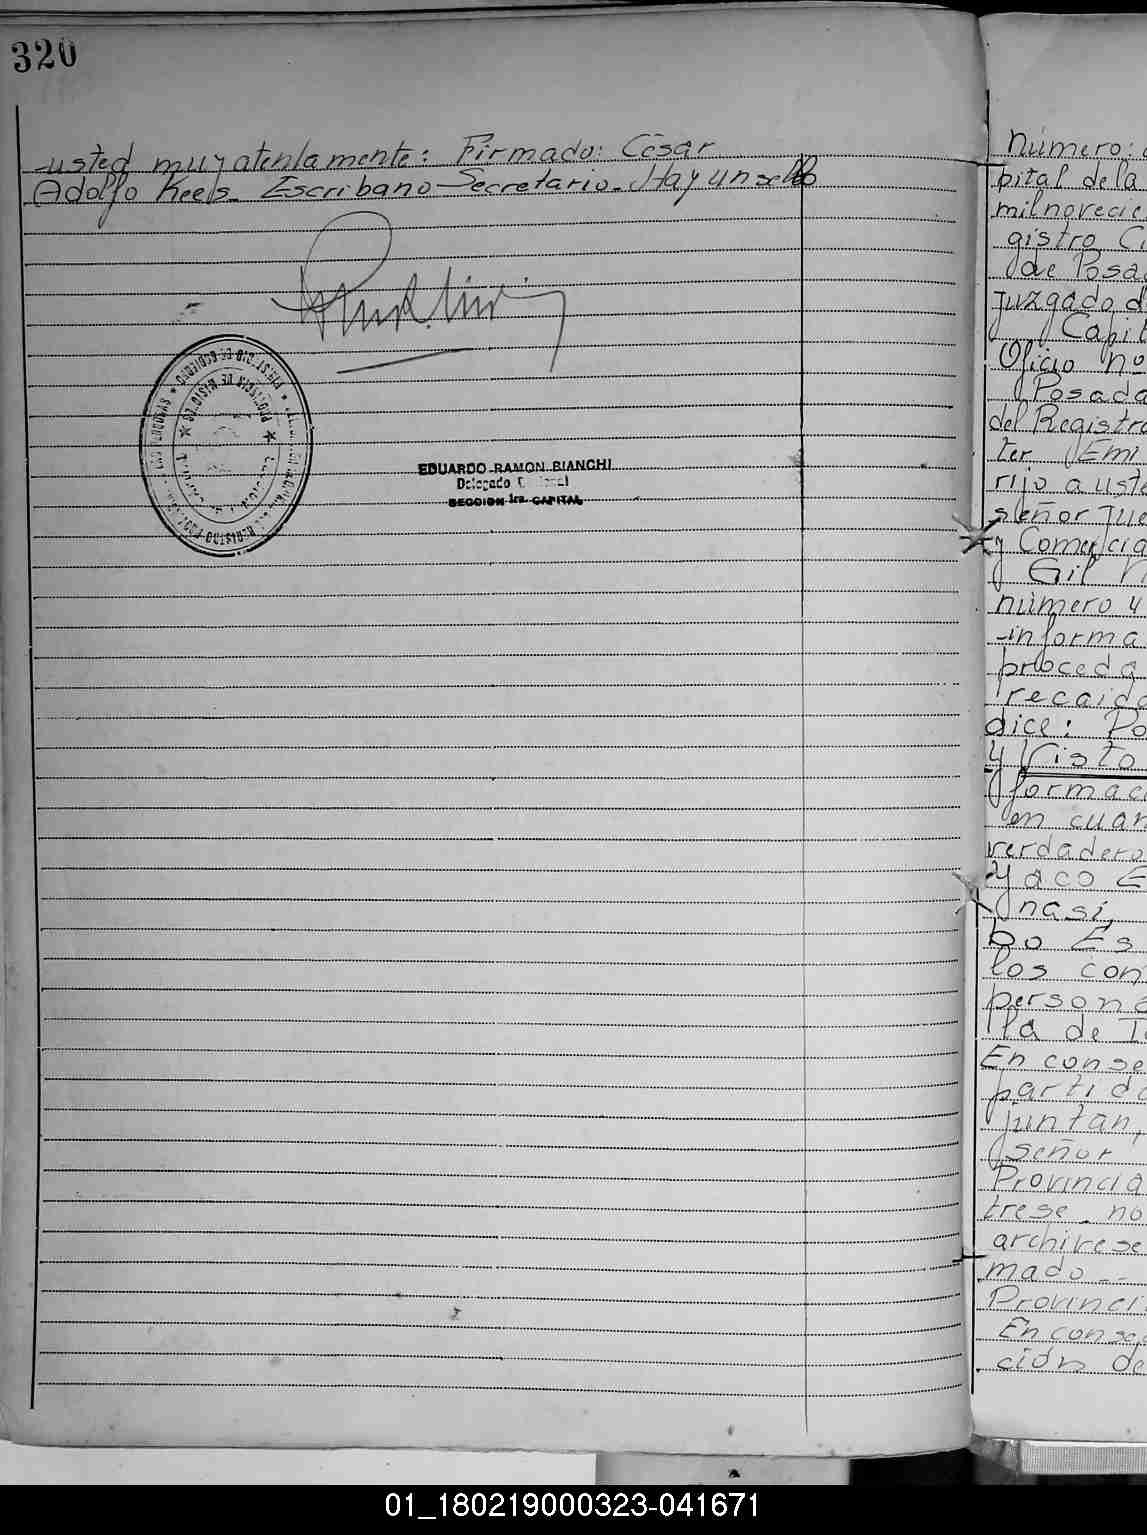 320
usted muy atentamente: Firmado: César
Adolfo Keels. Escribano-Secretario. Hay un sello
PROVINCIA DE MISIONES
EDUARDO RAMON BIANCHI
Delegado
SECCION 1ra. CAPITAL
Número:
pital de la
milnovecie
gistro C
de Posa
Juzgado d
Capit
Oficio no
Posada
del Registro
ter (Emi
rijo a uste
señor Jue
y Comercia
Gil
número 4
informa
proceda
recaido
dice: Po
y Visto
formac
en cuan
verdadero
yaco E
nasi,
bo Es
los con
persona
lla de T
En conse
partida
juntan,
señor
Provincia
trese. no
archivese
mado.--
Provinci
En conse
ción de
01_180219000323-041671